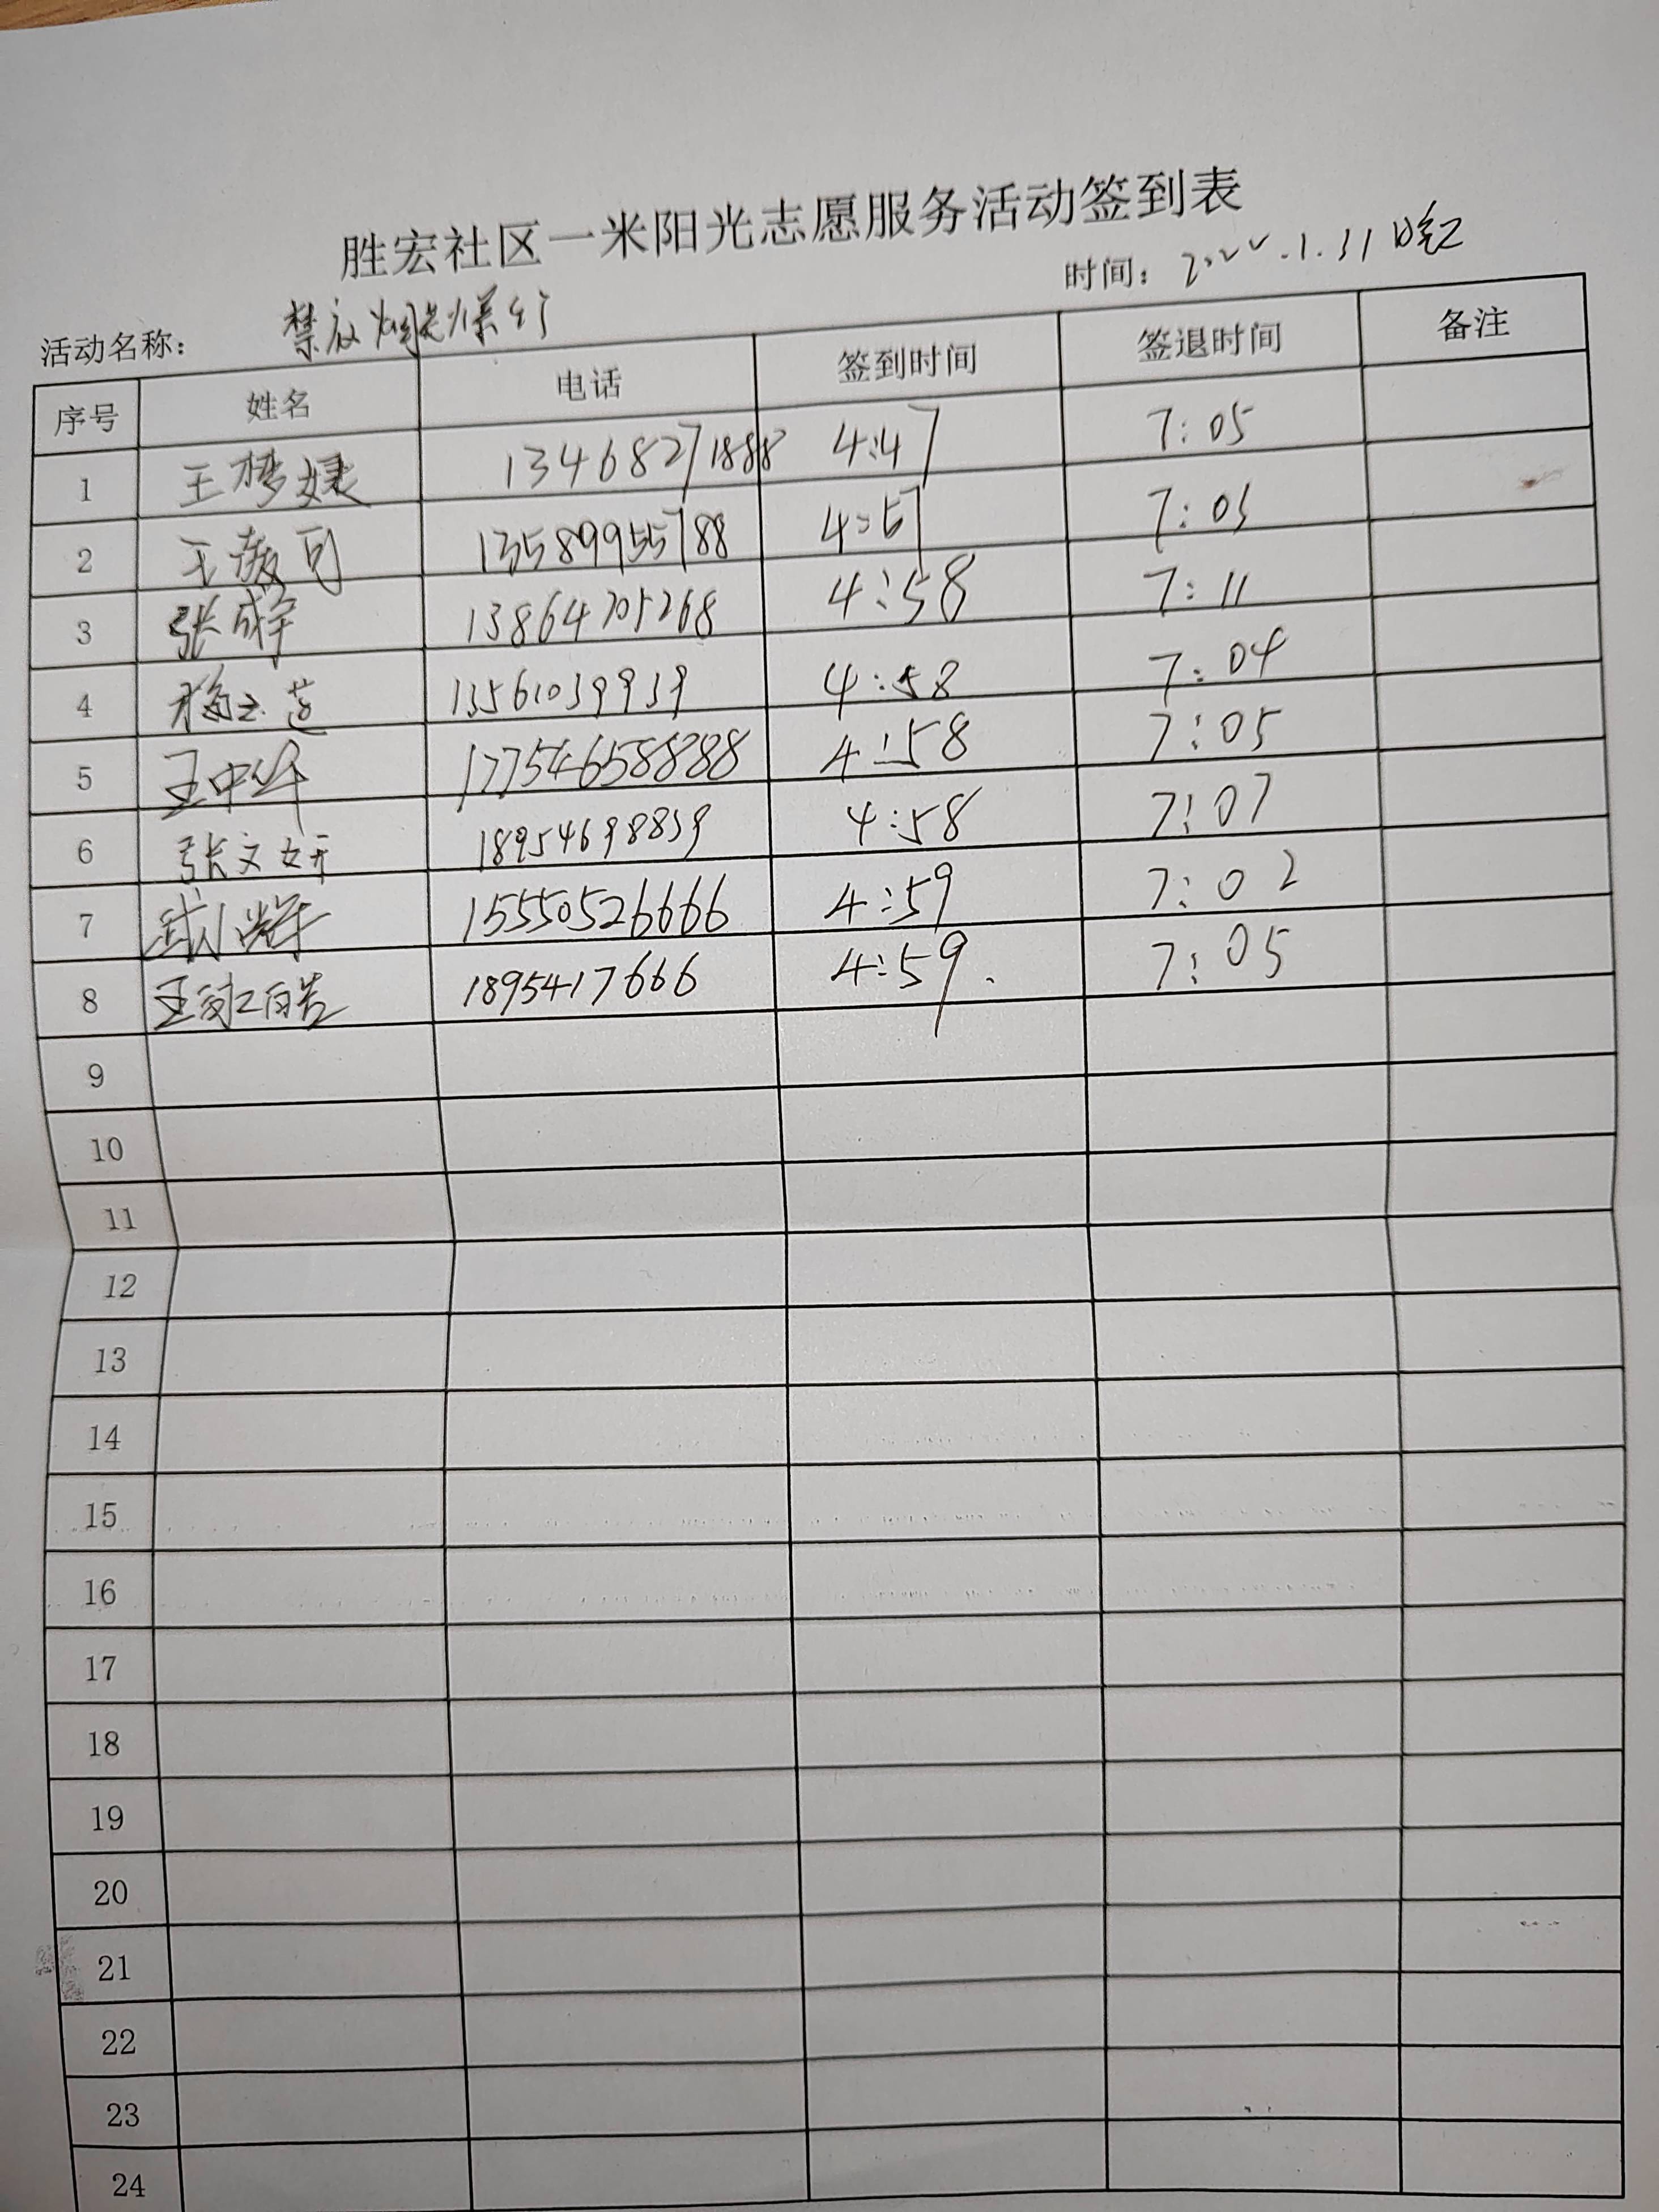 胜宏社区一米阳光志愿服务活动签到表
时间：2022.1.31日
活动名称： 禁放烟花爆竹
序号 姓名 电话 签到时间 签退时间 备注
1 王梦婕 13468271888 4:47 7:05
2 王 可 13589955788 4:57 7:03
3 张成宇 13864705268 4:58 7:11
4 13561039939 4:58 7:04
5 王中华 17754658888 4:58 7:05
6 张文妍 18954698839 4:58 7:07
7 15550526666 4:59 7:02
8 王 1895417666 4:59. 7:05
9
10
11
12
13
14
15
16
17
18
19
20
21
22
23
24